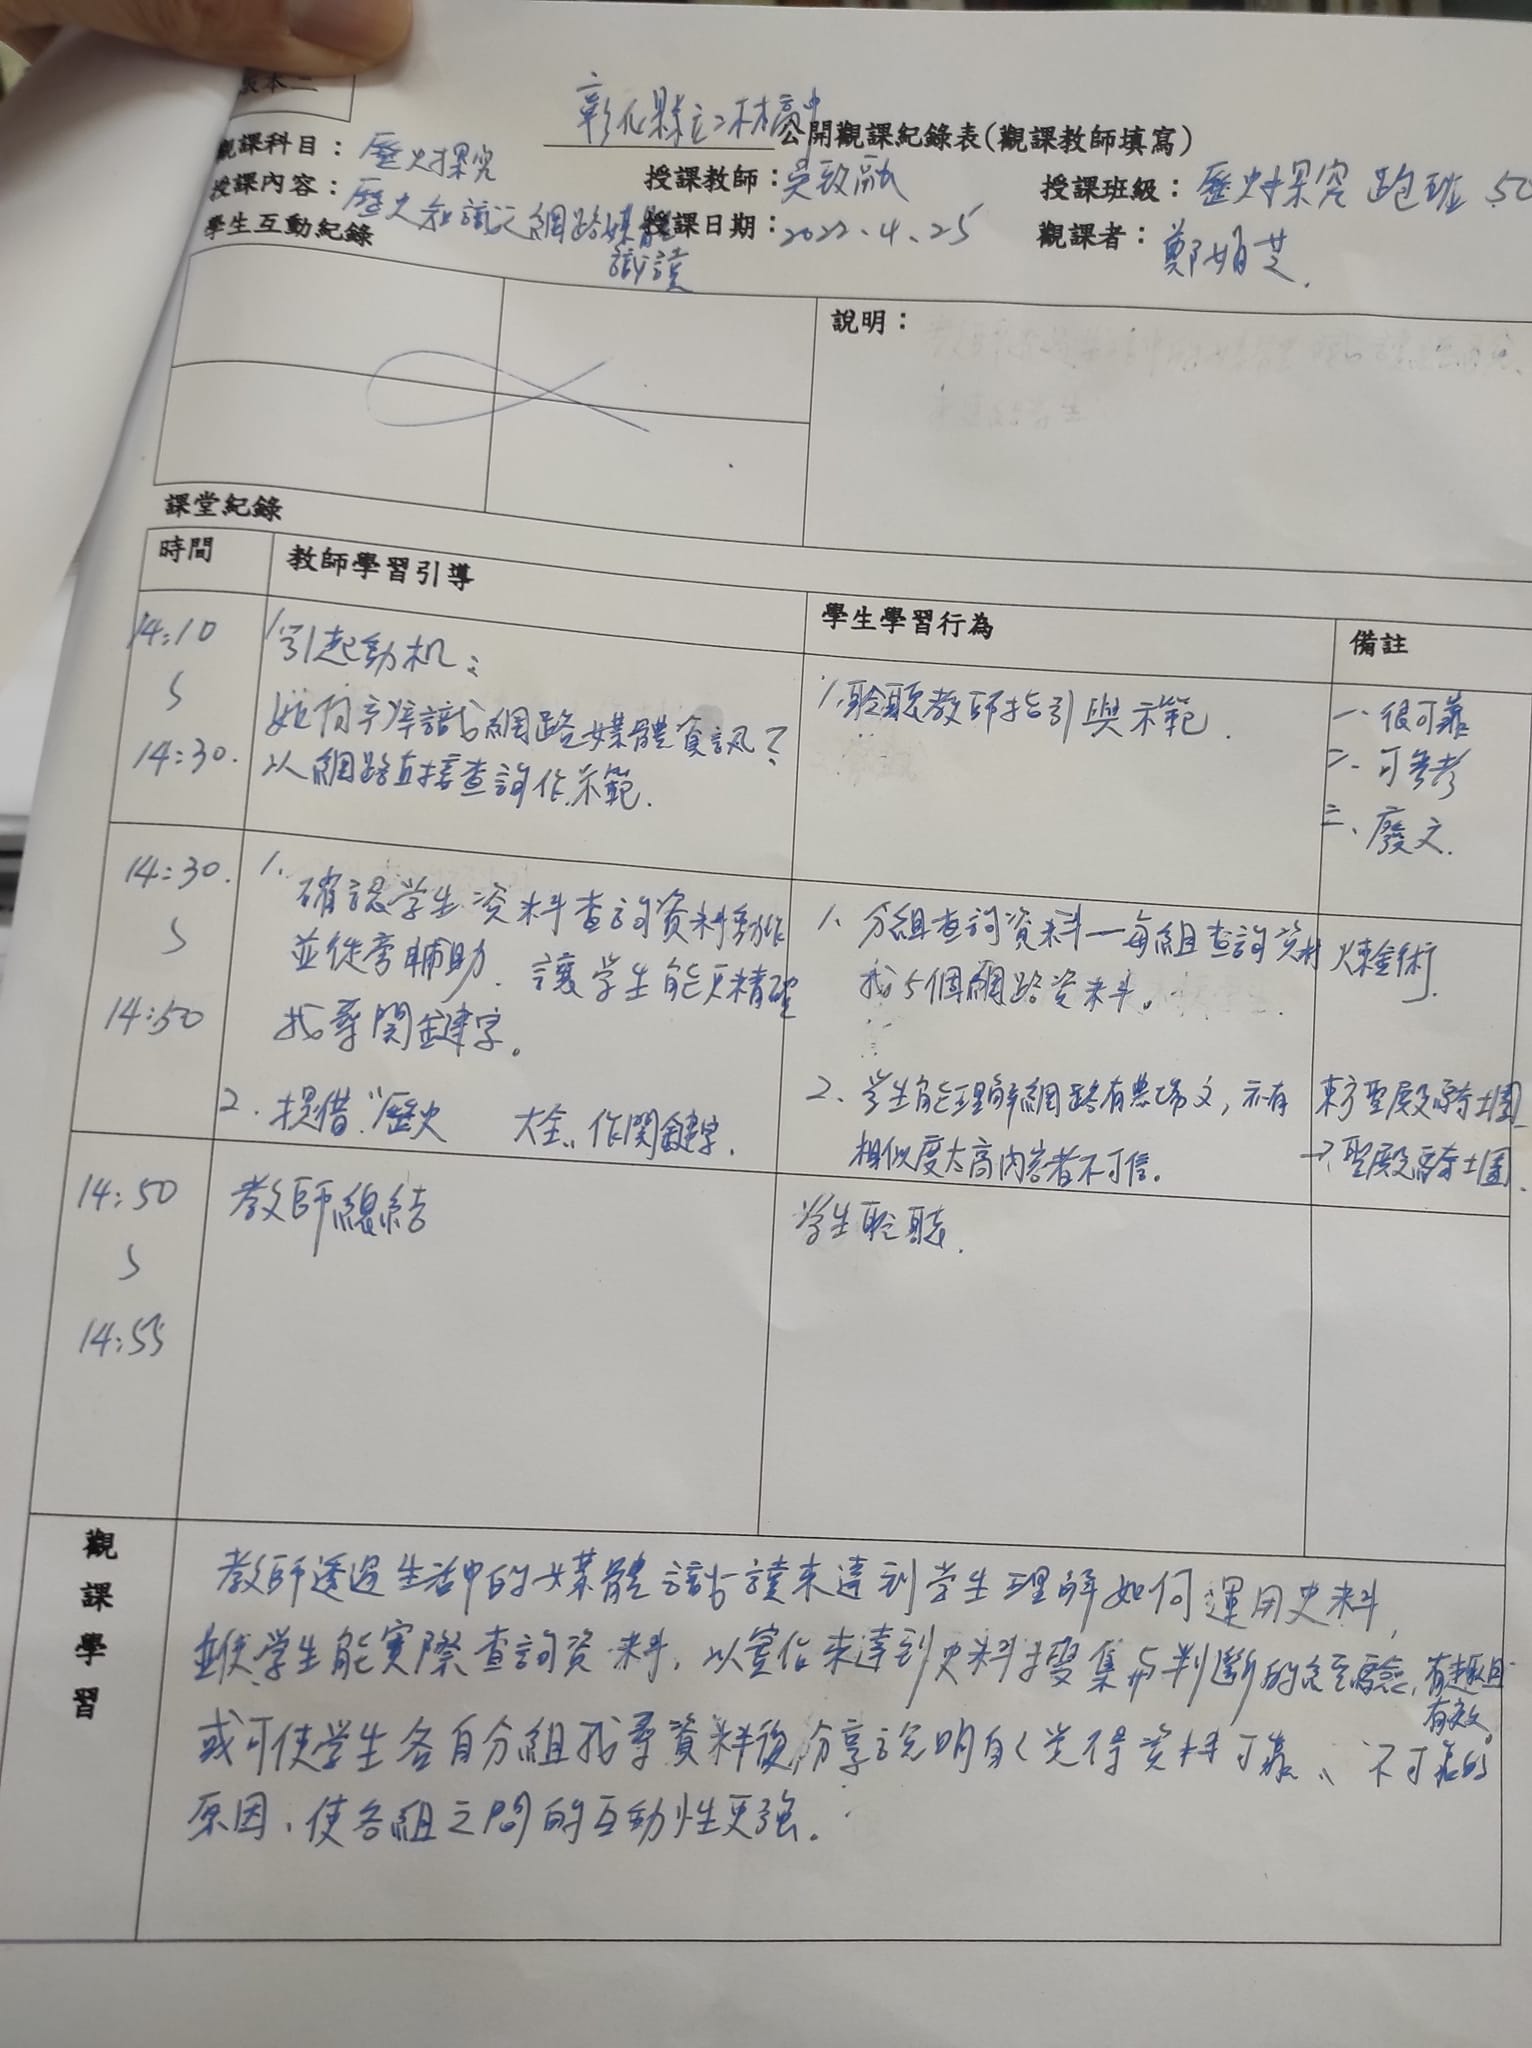 版本二
彰化縣立二林高中公開觀課紀錄表(觀課教師填寫)
觀課科目：歷史探究 授課教師：吳致融 授課班級：歷史探究 跑班 50
授課內容：歷史知識之網路媒體識讀 授課日期：2022.4.25 觀課者：鄭娟芝.
學生互動紀錄
說明：
課堂紀錄
時間 教師學習引導 學生學習行為 備註
14:10
14:30.
1.引起動机：
如何辛辨識網路媒體資訊？
以網路直接查詢作示範.
1.聆聽教師指引與示範.
一、很可靠
二、可參考
三、廢文.
14:30.
14:50
1.
確認学生資料查詢資料動作
並從旁輔助.讓学生能更精確
找尋関鍵字。
2.提借"歷史 大全"作関鍵字.
1.分組查詢資料—每組查詢資料
找5個網路資料。
2、学生能理解網路有農場文，亦有
相似度太高內容者不可信。
煉金術.
東方聖殿騎士團
→聖殿騎士團.
14:50
14:55
教師總結
学生聆聽.
觀課學習
教師透過生活中的媒體識讀來達到学生理解如何運用史料,
並使学生能實際查詢資料,以實作來達到史料搜集與判斷的經驗,有趣且
有效。
或可使学生各自分組找尋資料後,分享說明自己觉得資料可靠、不可靠的
原因,使各組之間的互動性更強.